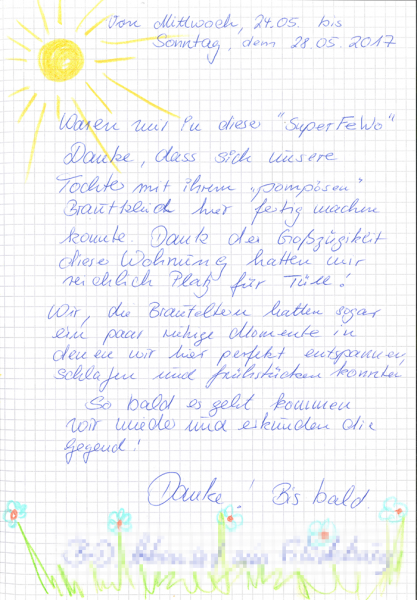 Von Mittwoch, 24.05. bis
Sonntag, dem 28.05.2017
Waren wir in dieser "SuperFeWo"
Danke, dass sich unsere
Tochter mit ihrem „pompösen"
Brautkleid hier fertig machen
konnte Dank der Großzügikeit
diese Wohnung hatten wir
reichlich Platz für Tüll!
Wir, die Brauteltern hatten sogar
ein paar ruhige Momente in
denen wir hier perfekt entspannen,
schlafen und frühstücken konnten
So bald es geht kommen
wir wieder und erkunden die
Gegend!
Danke! Bis bald